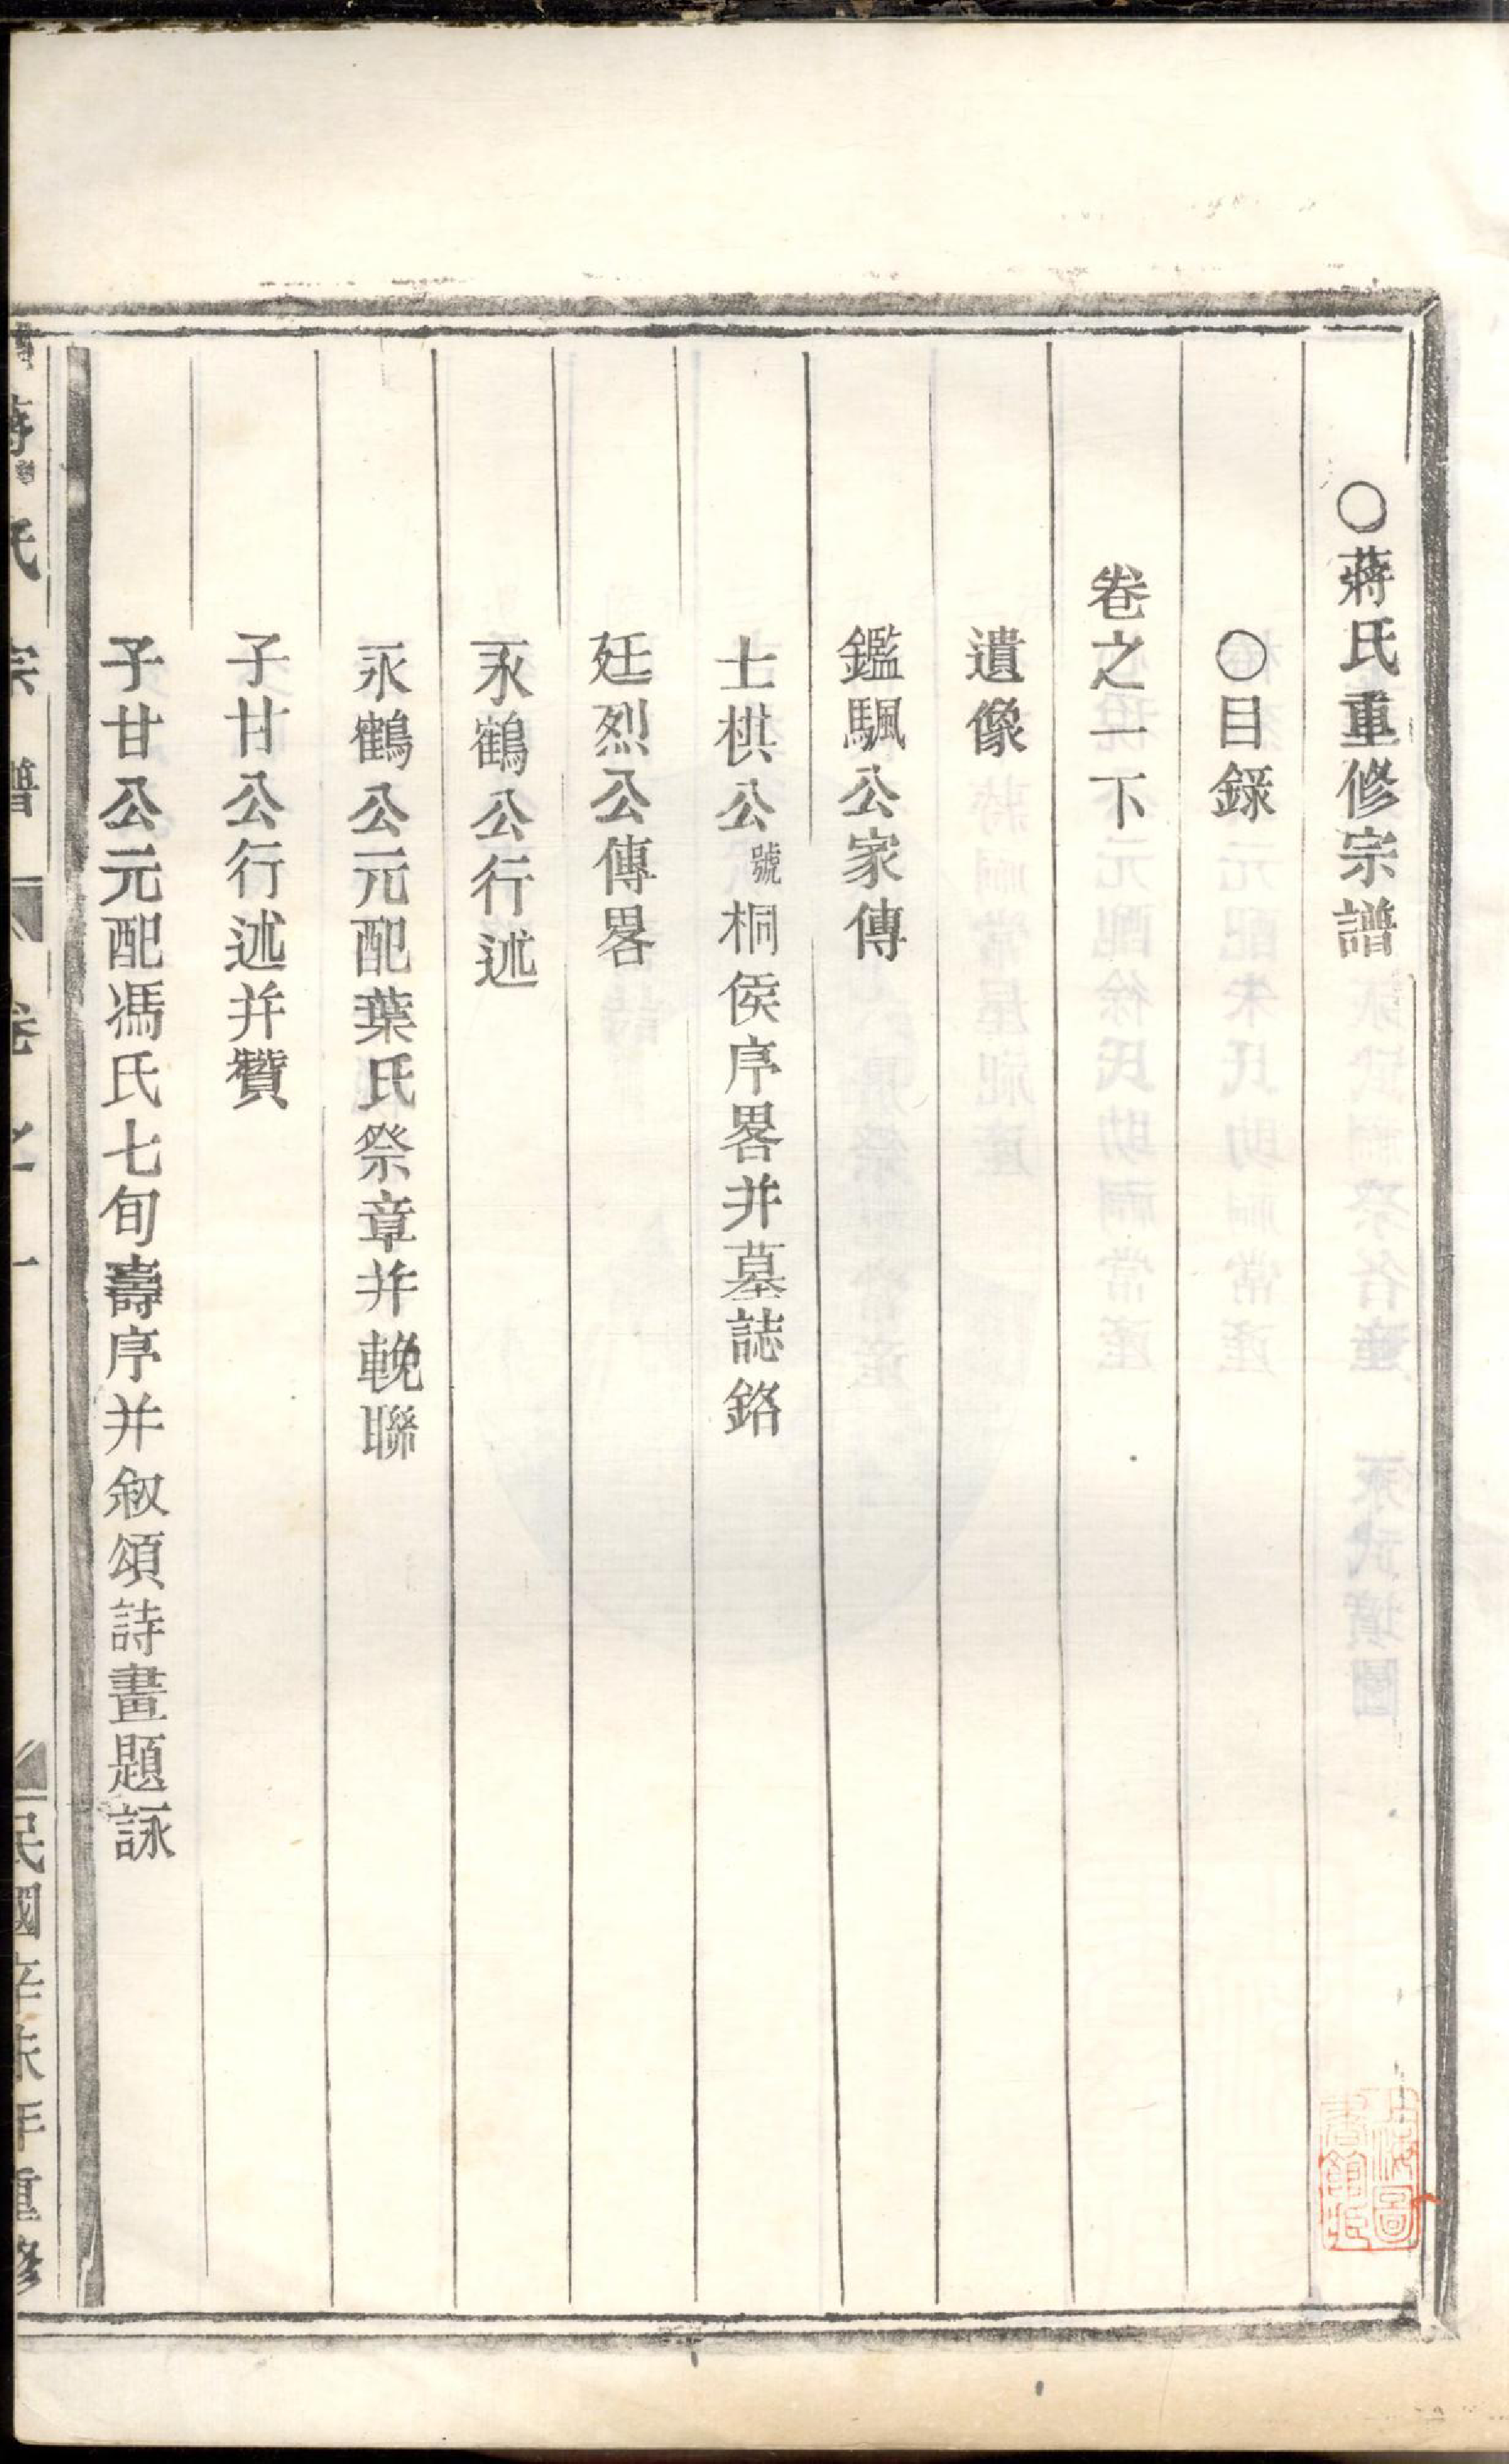 ○蔣氏重修宗譜
○目錄
卷之一下
遺像
鑑颿公家傳
士棋公號桐侯序畧并墓誌銘
廷烈公傳畧
永鶴公行述
永鶴公元配葉氏祭章并輓聯
子甘公行述并贊
子甘公元配馮氏七旬壽序并叙頌詩畫題詠
蔣氏宗譜 卷之一 民國辛未年重修
上海圖書館藏